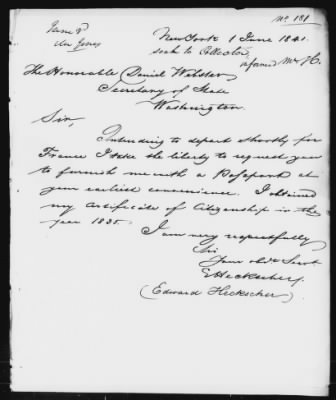 No. 181
New York 1 June 1841.
sent to Collector
informed Mr H.
The Honorable Daniel Webster
Secretary of State
Washington.
Sir,
Intending to depart shortly for
France I take the liberty to request you
to furnish me with a Passport at
your earliest convenience. I obtained
my Certificate of Citizenship in the
year 1835.
I am very respectfully
Sir
Your obdt Servt
E Heckscher
(Edward Heckscher)